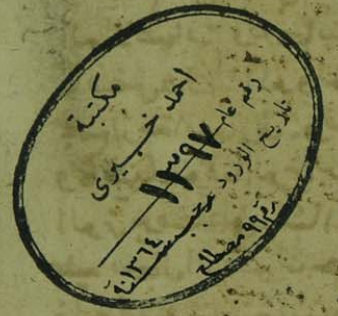 مكتبة
احمد خيرى
رقم عام ١٣٩٧
تاريخ الورود رجب سنة ١٣٦٤
رقم ٩٩ مصطلح